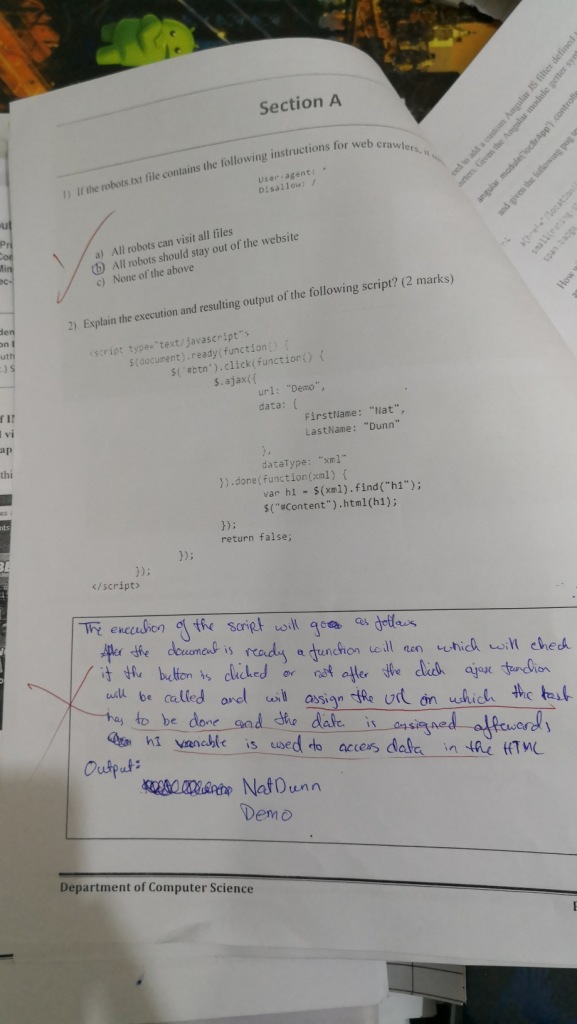 Section A
1) If the robots.txt file contains the following instructions for web crawlers,
User-agent: *
Disallow: /
a) All robots can visit all files
b) All robots should stay out of the website
c) None of the above
2) Explain the execution and resulting output of the following script? (2 marks)
<script type="text/javascript">
$(document).ready(function() {
$('#btn').click(function() {
$.ajax({
url: "Demo",
data: {
FirstName: "Nat",
LastName: "Dunn"
},
dataType: "xml"
}).done(function(xml) {
var h1 = $(xml).find("h1");
$("#Content").html(h1);
});
return false;
});
});
</script>
The execution of the script will goes as follows
After the document is ready a function will run which will check
if the button is clicked or not after the click ajax function
will be called and will assign the url on which the task
has to be done and the data is assigned aftewards
h1 variable is used to access data in the HTML
Output:
NatDunn
Demo
Department of Computer Science
and given the following
How